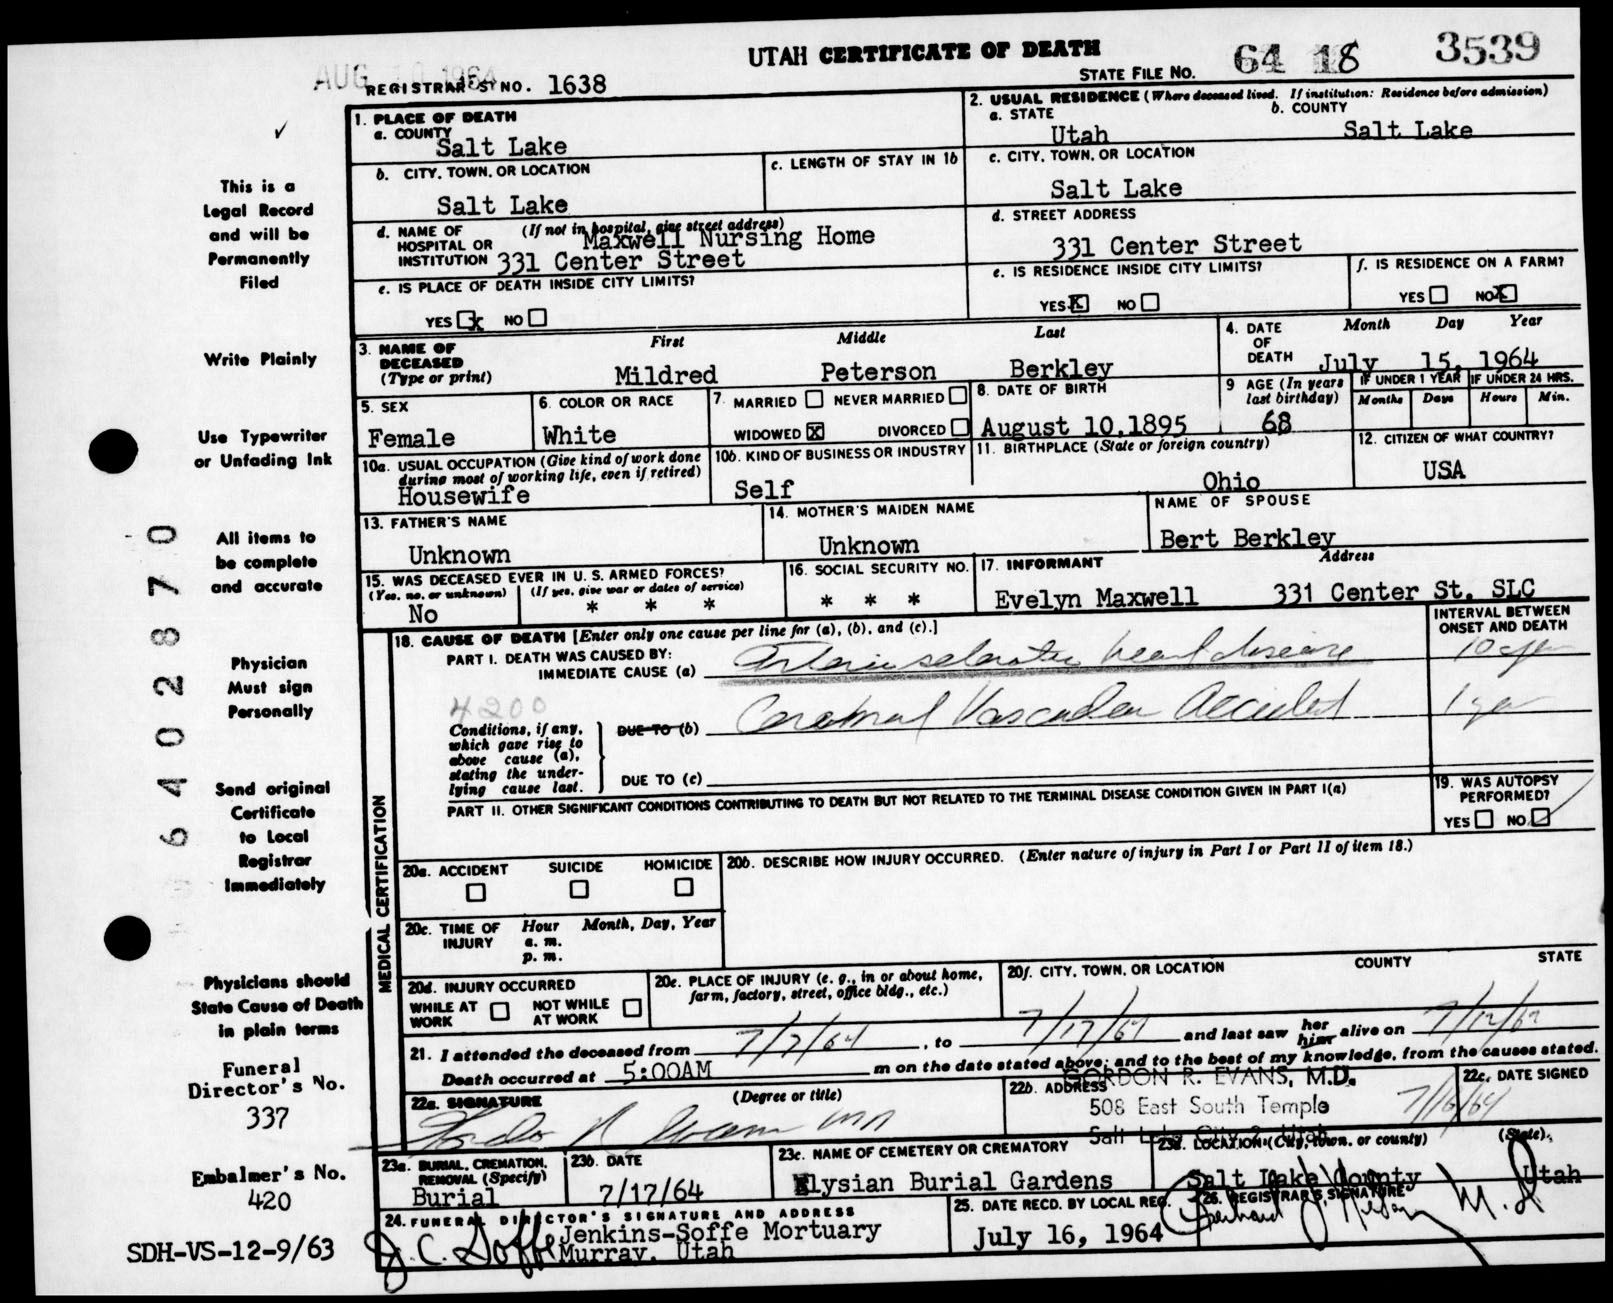 UTAH CERTIFICATE OF DEATH
AUG 10 1964
REGISTRAR'S NO. 1638
STATE FILE NO. 64 18 3539
1. PLACE OF DEATH
a. COUNTY
Salt Lake
2. USUAL RESIDENCE (Where deceased lived. If institution: Residence before admission)
a. STATE
Utah
b. COUNTY
Salt Lake
b. CITY, TOWN, OR LOCATION
Salt Lake
c. LENGTH OF STAY IN 1b
c. CITY, TOWN, OR LOCATION
Salt Lake
d. NAME OF HOSPITAL OR INSTITUTION
(If not in hospital, give street address)
Maxwell Nursing Home
331 Center Street
d. STREET ADDRESS
331 Center Street
e. IS PLACE OF DEATH INSIDE CITY LIMITS?
YES x NO
e. IS RESIDENCE INSIDE CITY LIMITS?
YES X NO
f. IS RESIDENCE ON A FARM?
YES NO X
3. NAME OF DECEASED
(Type or print)
First Middle Last
Mildred Peterson Berkley
4. DATE OF DEATH
Month Day Year
July 15, 1964
5. SEX
Female
6. COLOR OR RACE
White
7. MARRIED NEVER MARRIED
WIDOWED X DIVORCED
8. DATE OF BIRTH
August 10,1895
9 AGE (In years last birthday)
68
IF UNDER 1 YEAR
Months Days
IF UNDER 24 HRS.
Hours Min.
10a. USUAL OCCUPATION (Give kind of work done during most of working life, even if retired)
Housewife
10b. KIND OF BUSINESS OR INDUSTRY
Self
11. BIRTHPLACE (State or foreign country)
Ohio
12. CITIZEN OF WHAT COUNTRY?
USA
13. FATHER'S NAME
Unknown
14. MOTHER'S MAIDEN NAME
Unknown
NAME OF SPOUSE
Bert Berkley
15. WAS DECEASED EVER IN U. S. ARMED FORCES?
(Yes, no, or unknown) (If yes, give war or dates of service)
No * * *
16. SOCIAL SECURITY NO.
* * *
17. INFORMANT Address
Evelyn Maxwell 331 Center St. SLC
MEDICAL CERTIFICATION
18. CAUSE OF DEATH [Enter only one cause per line for (a), (b), and (c).]
INTERVAL BETWEEN ONSET AND DEATH
PART I. DEATH WAS CAUSED BY:
IMMEDIATE CAUSE (a) Arteriosclerotic heart disease
4200
Conditions, if any, which gave rise to above cause (a), stating the underlying cause last.
DUE TO (b) Cerebral Vascular Accident
DUE TO (c)
PART II. OTHER SIGNIFICANT CONDITIONS CONTRIBUTING TO DEATH BUT NOT RELATED TO THE TERMINAL DISEASE CONDITION GIVEN IN PART I(a)
19. WAS AUTOPSY PERFORMED?
YES NO
20a. ACCIDENT SUICIDE HOMICIDE
20b. DESCRIBE HOW INJURY OCCURRED. (Enter nature of injury in Part I or Part II of item 18.)
20c. TIME OF INJURY
Hour Month, Day, Year
a. m.
p. m.
20d. INJURY OCCURRED
WHILE AT WORK NOT WHILE AT WORK
20e. PLACE OF INJURY (e. g., in or about home, farm, factory, street, office bldg., etc.)
20f. CITY, TOWN, OR LOCATION COUNTY STATE
21. I attended the deceased from 7/7/64, to 7/17/64 and last saw her him alive on 7/12/64
Death occurred at 5:00AM m on the date stated above; and to the best of my knowledge, from the causes stated.
22a. SIGNATURE (Degree or title)
Gordon R Evans MD
22b. ADDRESS
GORDON R. EVANS, M.D.
508 East South Temple
Salt Lake City 2, Utah
22c. DATE SIGNED
7/16/64
23a. BURIAL, CREMATION, REMOVAL (Specify)
Burial
23b. DATE
7/17/64
23c. NAME OF CEMETERY OR CREMATORY
Elysian Burial Gardens
23d. LOCATION (City, town, or county) (State)
Salt Lake County Utah
24. FUNERAL DIRECTOR'S SIGNATURE AND ADDRESS
J. C. Soffe
Jenkins-Soffe Mortuary
Murray, Utah
25. DATE RECD. BY LOCAL REG.
July 16, 1964
26. REGISTRAR'S SIGNATURE
This is a
Legal Record
and will be
Permanently
Filed
Write Plainly
Use Typewriter
or Unfading Ink
All items to
be complete
and accurate
Physician
Must sign
Personally
Send original
Certificate
to Local
Registrar
Immediately
Physicians should
State Cause of Death
in plain terms
Funeral
Director's No.
337
Embalmer's No.
420
SDH-VS-12-9/63
6402870